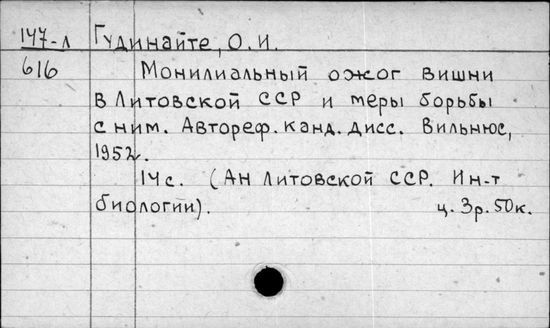 147-л Гудинайте, О.И.
616 Монилиальный ожог вишни
в Литовской ССР и меры борьбы
с ним. Автореф. канд. дисс. Вильнюс,
1952.
14с. (Ан Литовской ССР. Ин-т
биологии). ц. 3р. 50к.